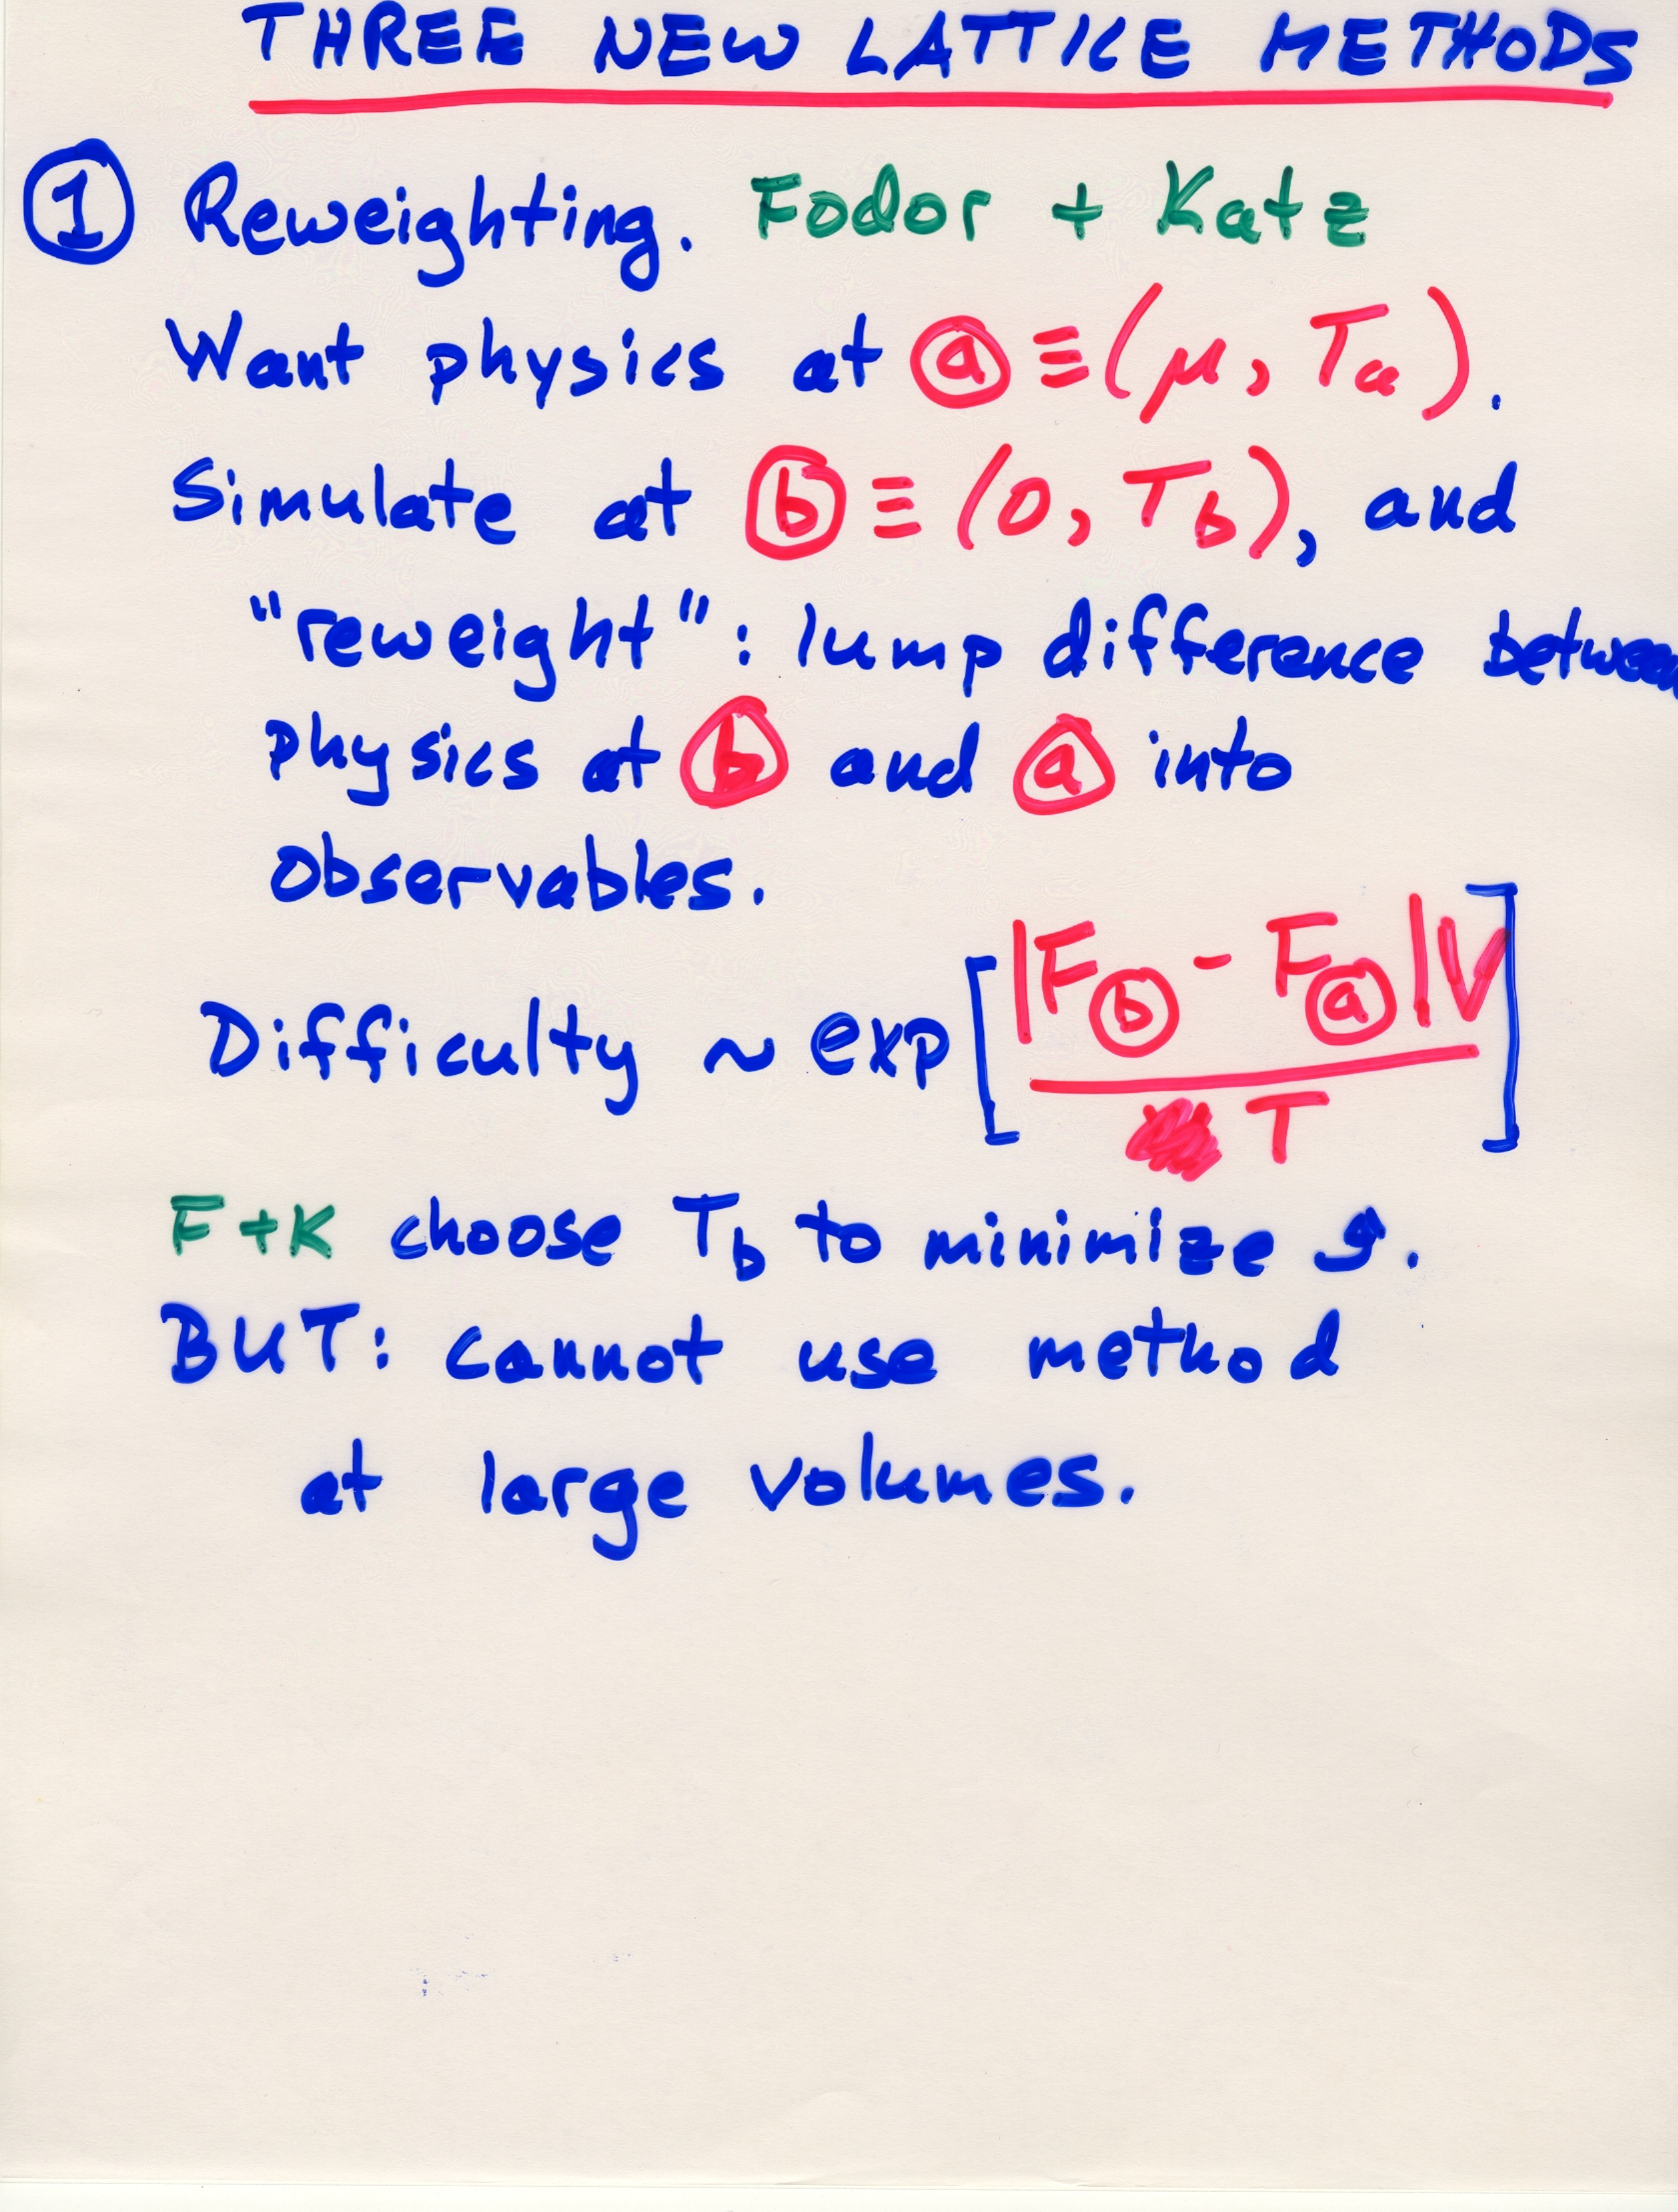 THREE NEW LATTICE METHODS
① Reweighting. Fodor + Katz
Want physics at ⓐ ≡ (μ, Tₐ).
Simulate at ⓑ ≡ (0, T_b), and
"reweight": lump difference between
physics at ⓑ and ⓐ into
observables.
Difficulty ~ exp[|F_ⓑ - F_ⓐ|V / T]
F+K choose T_b to minimize ↑.
BUT: cannot use method
at large volumes.